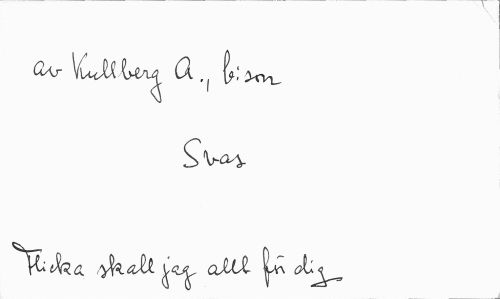 av Kullberg A., bison
Svas
Flicka skall jag allt för dig